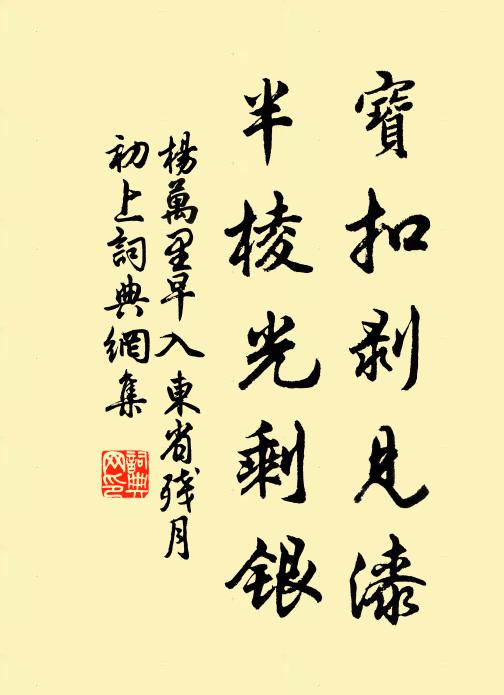 寶扣剥見漆
半棱光剩銀
楊萬里早入東省殘月
初上詞典網集
詞典
网印